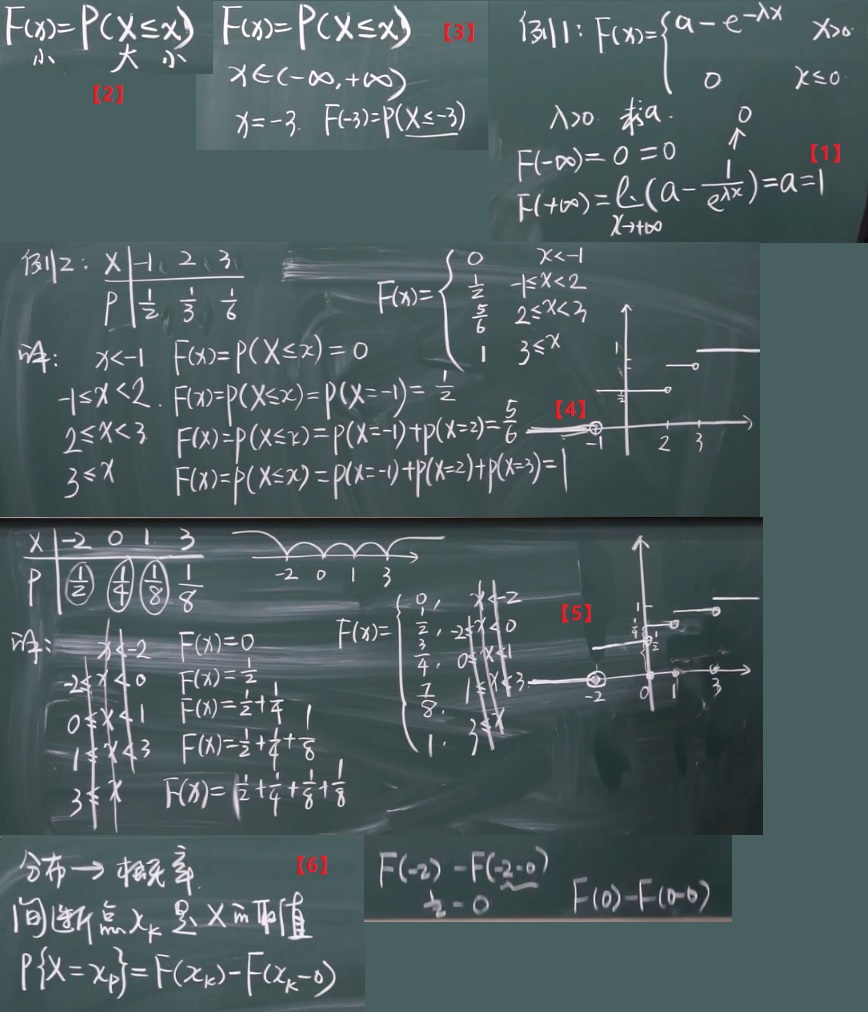 F(x)=P(X≤x)
小 大 小
【2】
F(x)=P(X≤x) 【3】
x∈(-∞,+∞)
x=-3 F(-3)=P(X≤-3)
例1: F(x)={a-e^{-λx} x>0
0 x≤0
λ>0 求a. 0
↑
F(-∞)=0=0 【1】
F(+∞)=lim_{x→+∞}(a-1/e^{λx})=a=1
例2: X -1 2 3
P 1/2 1/3 1/6
F(x)={0 x<-1
1/2 -1≤x<2
5/6 2≤x<3
1 3≤x
解: x<-1 F(x)=P(X≤x)=0
-1≤x<2. F(x)=P(X≤x)=P(X=-1)=1/2
2≤x<3 F(x)=P(X≤x)=P(X=-1)+P(X=2)=5/6
3≤x F(x)=P(X≤x)=P(X=-1)+P(X=2)+P(X=3)=1
【4】
1
1/2
-1 2 3
X -2 0 1 3
P 1/2 1/4 1/8 1/8
-2 0 1 3
解: x<-2 F(x)=0
-2≤x<0 F(x)=1/2
0≤x<1 F(x)=1/2+1/4
1≤x<3 F(x)=1/2+1/4+1/8
3≤x F(x)=1/2+1/4+1/8+1/8
F(x)={0, x<-2
1/2, -2≤x<0
3/4, 0≤x<1
7/8, 1≤x<3
1. 3≤x
【5】
1
1/2
-2 0 1 3
分布→概率 【6】
间断点x_k是X的取值
P{X=x_p}=F(x_k)-F(x_k-0)
F(-2)-F(-2-0)
1/2-0 F(0)-F(0-0)